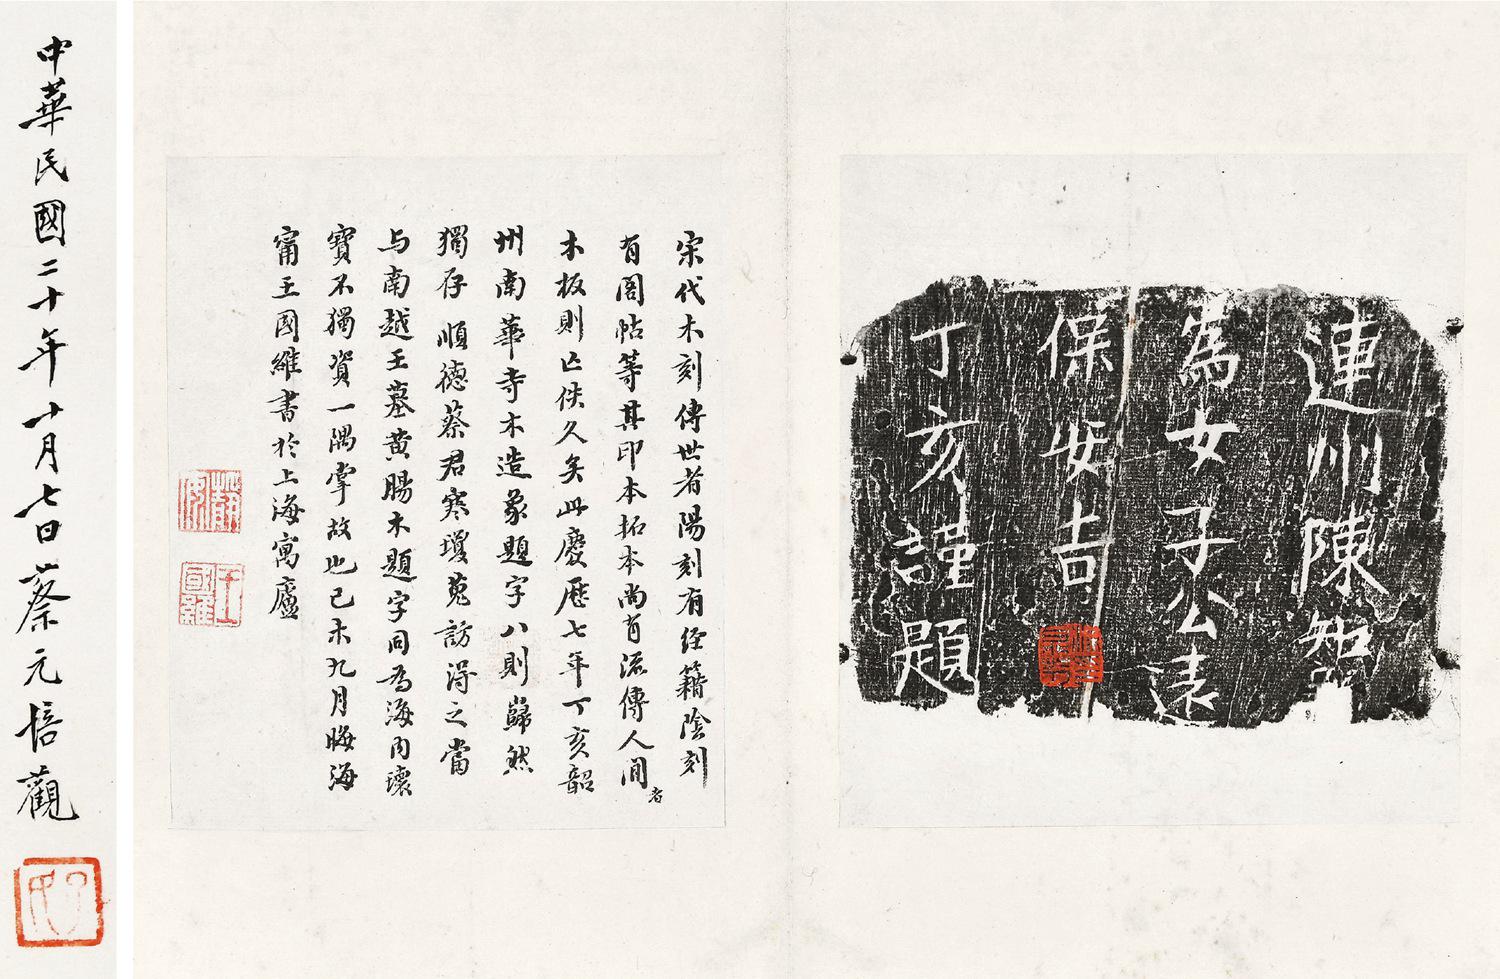 連州陳知
為女子公遠
保安吉
丁亥謹題
宋代木刻傳世者陽刻有經籍陰刻
有閣帖等其印本拓本尚有流傳人間者
木板則亡佚久矣此慶歷七年丁亥韶
州南華寺木造象題字八則巋然
獨存順德蔡君寒瓊蒐訪得之當
与南越王墓黄腸木題字同為海內瓌
寶不獨資一隅掌故也己未九月晦海
甯王國維書於上海寓廬
靜安
王國維
中華民國二十年十月七日蔡元培觀
孑民